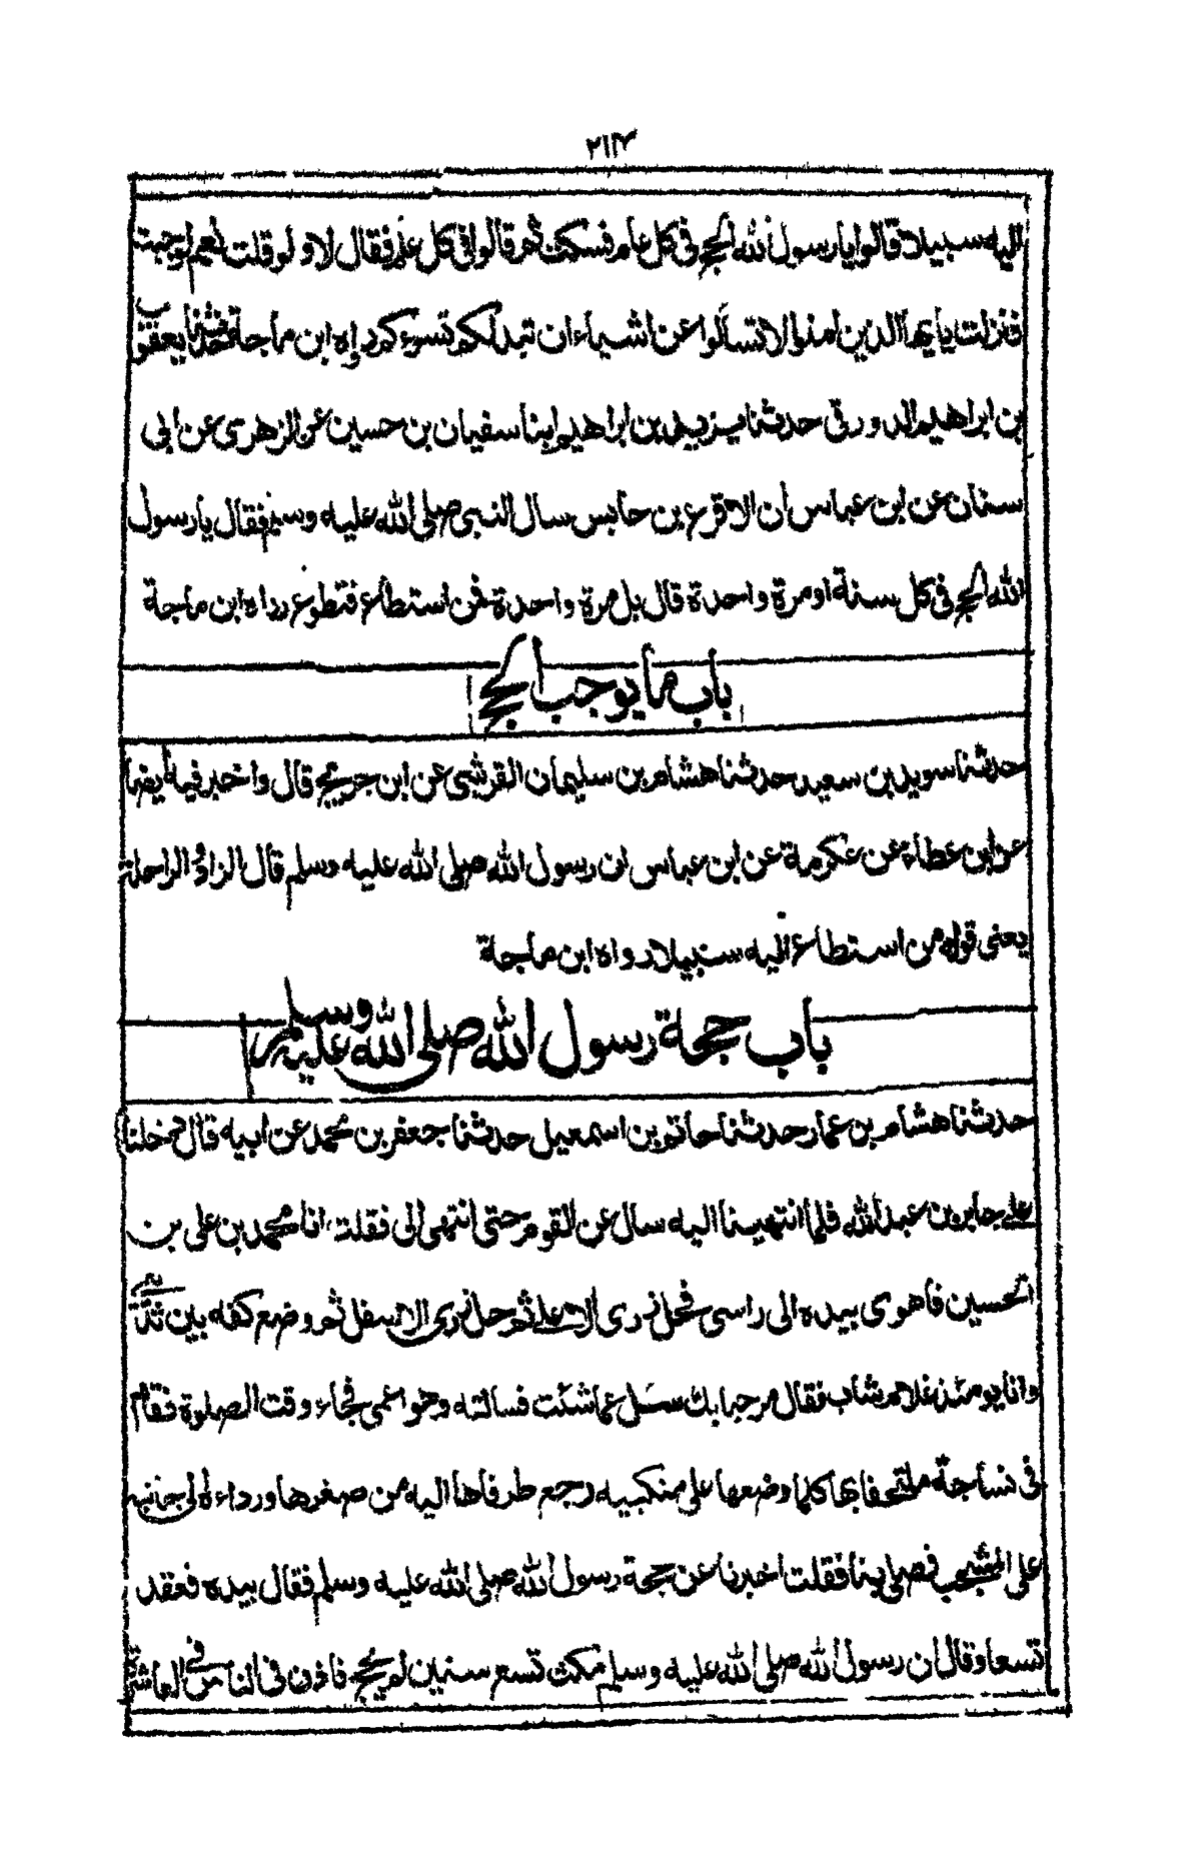 ٢١٣
اليه سبيلا قالوا يا رسول الله الحج فى كل عام فسكت ثم قالوا فى كل عام فقال لا ولو قلت نعم لوجبت
فنزلت يا يها الذين امنوا لا تسألوا عن اشياء ان تبدلكم تسوءكم رواه ابن ماجة حدثنا يعقوب
بن ابراهيم الدورقى حدثنا يزيد بن ابراهيم ابنا سفيان بن حسين عن الزهرى عن ابى
سنان عن ابن عباس ان الاقرع بن حابس سال النبى صلى الله عليه وسلم فقال يا رسول
الله الحج فى كل سنة او مرة واحدة قال بل مرة واحدة فمن استطاع فتطوع رواه ابن ماجة
باب ما يوجب الحج
حدثنا سويد بن سعيد حدثنا هشام بن سليمان القرشى عن ابن جريج قال واخبرنيه ايضا
عن ابن عطاء عن عكرمة عن ابن عباس ان رسول الله صلى الله عليه وسلم قال الزاد والراحلة
يعنى قوله من استطاع اليه سبيلا رواه ابن ماجة
باب حجة رسول الله صلى الله عليه وسلم
حدثنا هشام بن عمار حدثنا حاتم بن اسمعيل حدثنا جعفر بن محمد عن ابيه قال دخلنا
على جابر بن عبد الله فلما انتهينا اليه سال عن القوم حتى انتهى الى فقلت انا محمد بن على بن
الحسين فاهوى بيده الى راسى فحل زرى الاعلى ثم حل زرى الاسفل ثم وضع كفه بين ثديى
وانا يومئذ غلام شاب فقال مرحبا بك سل عما شئت فسالته وهو اعمى فجاء وقت الصلوة فقام
فى نساجة ملتحفا بها كلما وضعها على منكبيه رجع طرفاها اليه من صغرها ورداءه الى جانبه
على المشجب فصلى بنا فقلت اخبرنا عن حجة رسول الله صلى الله عليه وسلم فقال بيده فعقد
تسعا وقال ان رسول الله صلى الله عليه وسلم مكث تسع سنين لم يحج فاذن فى الناس فى العاشرة